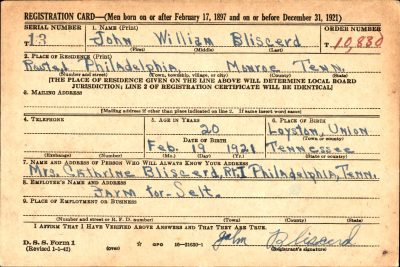 REGISTRATION CARD—(Men born on or after February 17, 1897 and on or before December 31, 1921)
SERIAL NUMBER 1. NAME (Print) ORDER NUMBER
T 13 John William Bliscerd T 10,830
(First) (Middle) (Last)
2. PLACE OF RESIDENCE (Print)
Route 1 Philadelphia, Monroe Tenn.
(Number and street) (Town, township, village, or city) (County) (State)
[THE PLACE OF RESIDENCE GIVEN ON THE LINE ABOVE WILL DETERMINE LOCAL BOARD
JURISDICTION; LINE 2 OF REGISTRATION CERTIFICATE WILL BE IDENTICAL]
3. MAILING ADDRESS
[Mailing address if other than place indicated on line 2. If same insert word same]
4. TELEPHONE 5. AGE IN YEARS 6. PLACE OF BIRTH
20 Loyston, Union
DATE OF BIRTH (Town or county)
Feb. 19 1921 Tennessee
(Exchange) (Number) (Mo.) (Day) (Yr.) (State or country)
7. NAME AND ADDRESS OF PERSON WHO WILL ALWAYS KNOW YOUR ADDRESS
Mrs. Catharine Bliscerd, Rt. I Philadelphia, Tenn.
8. EMPLOYER'S NAME AND ADDRESS
Farm for Self.
9. PLACE OF EMPLOYMENT OR BUSINESS
(Number and street or R. F. D. number) (Town) (County) (State)
I AFFIRM THAT I HAVE VERIFIED ABOVE ANSWERS AND THAT THEY ARE TRUE.
D. S. S. Form 1 John Bliscerd
(Revised 1-1-42) (over) GPO 16—21630-1 (Registrant's signature)